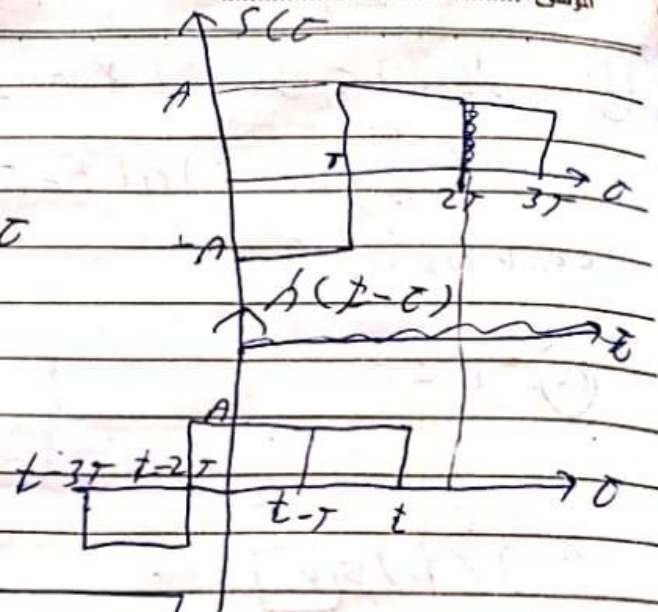 S(τ
A
T
2T 3T τ
τ
-A
h(t-τ)
t
A
t-3T t-2T
t-T t τ